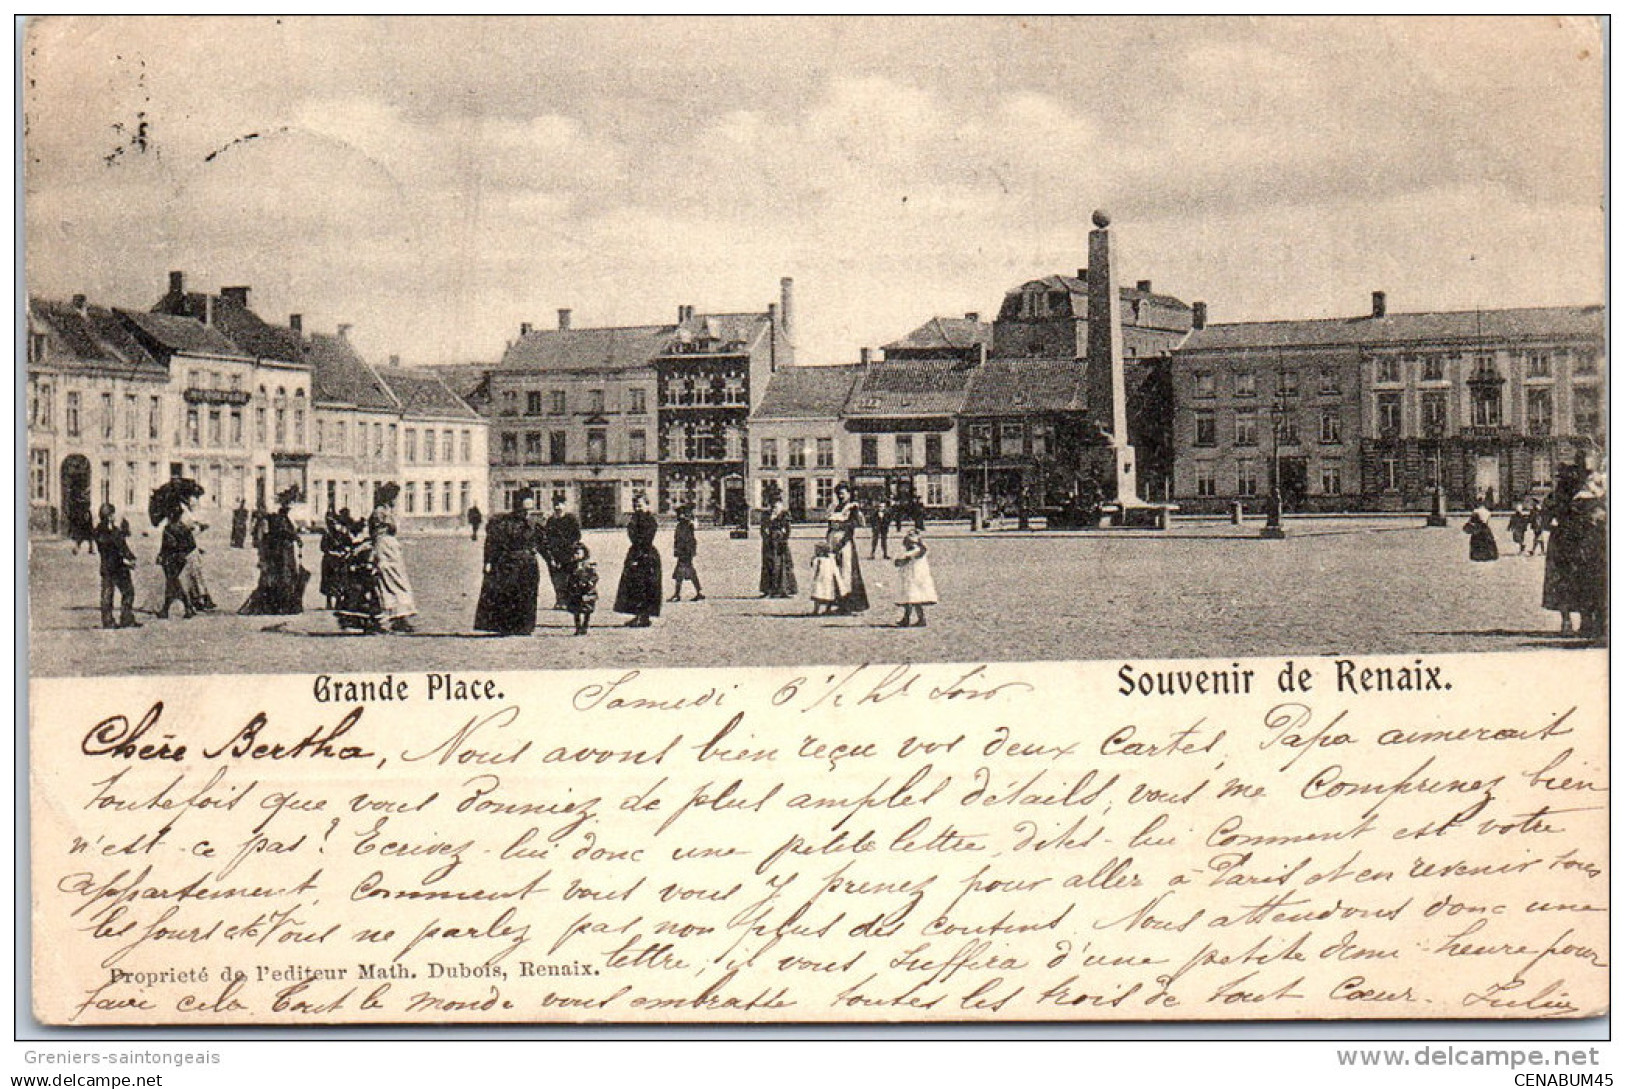 Grande Place.
Samedi 6 ½ hs Soir
Souvenir de Renaix.
Chère Bertha, Nous avons bien reçu vos deux cartes, Papa aimerait
toutefois que vous donniez de plus amples détails, vous me comprenez bien
n'est-ce pas? Ecrivez-lui donc une petite lettre, dites-lui comment est votre
appartement, comment vous vous y prenez pour aller à Paris et en revenir tous
les jours etc Vous ne parlez pas non plus des cousins. Nous attendons donc une
lettre, il vous suffira d'une petite demi-heure pour
Proprieté de l'editeur Math. Dubois, Renaix.
faire cela. Tout le monde vous embrasse toutes les trois de tout cœur.
Greniers-saintongeais
www.delcampe.net
CENABUM45